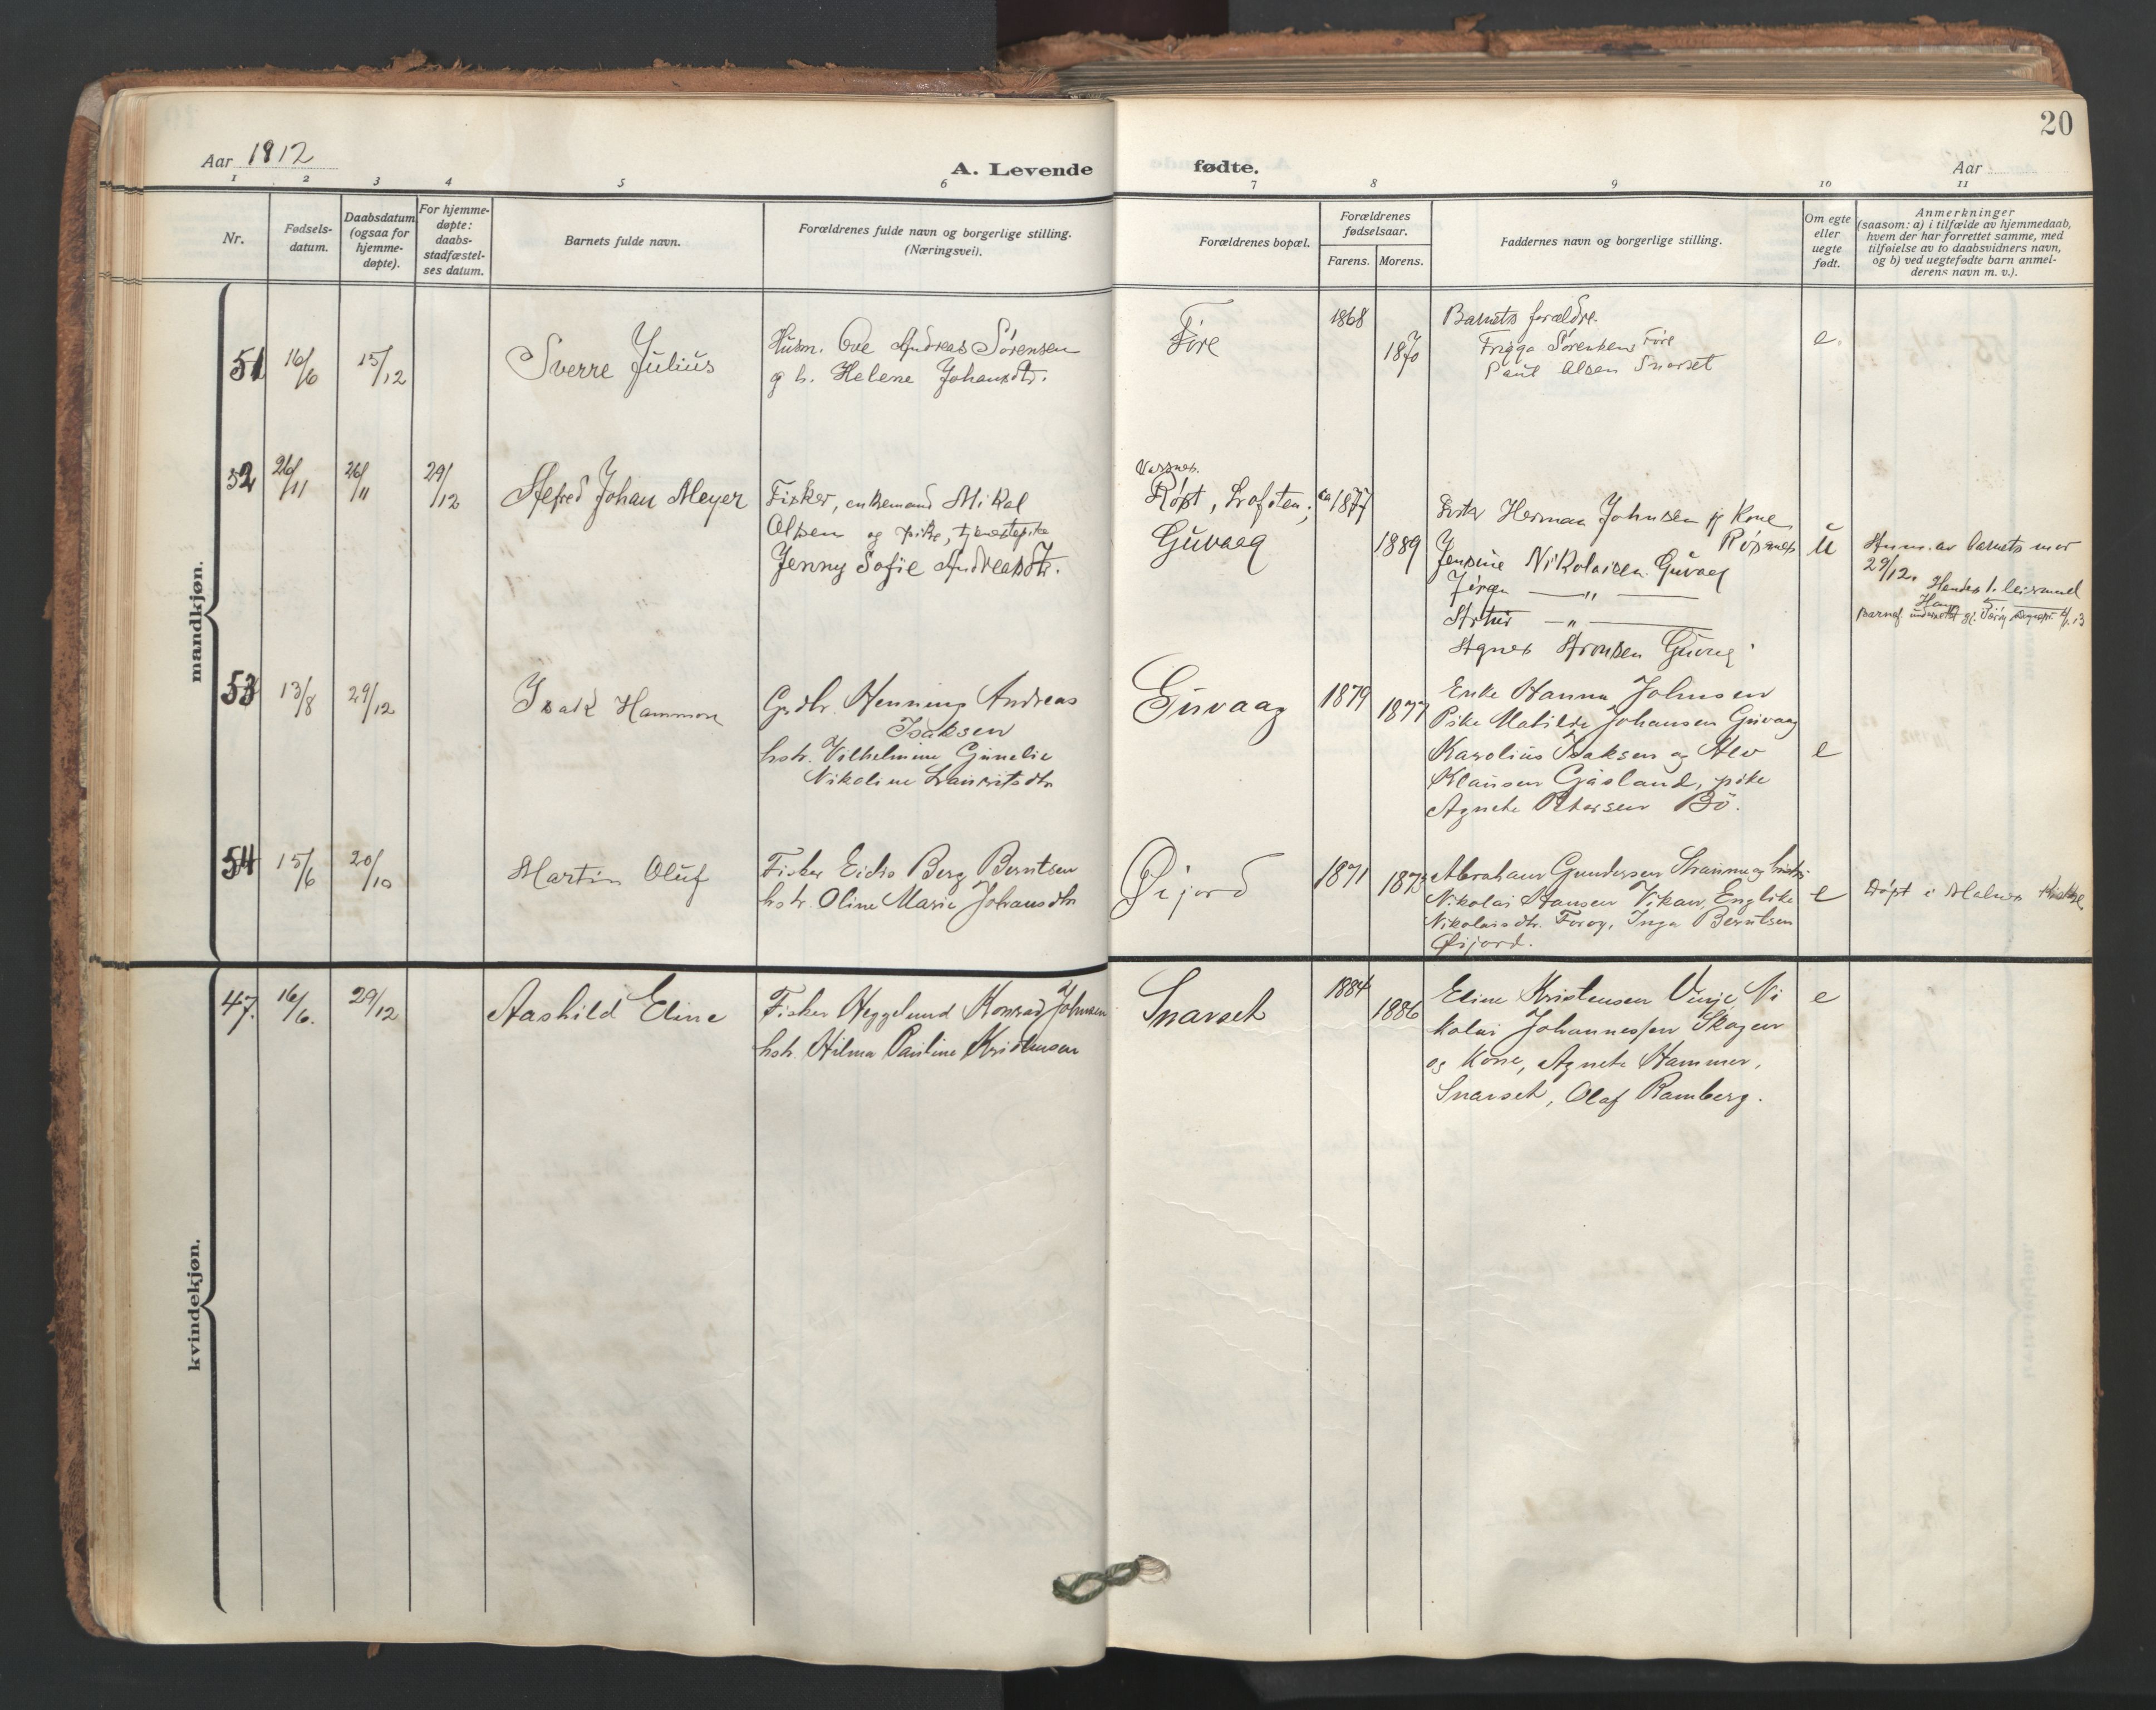 20
Aar 1912
A. Levende fødte.
Aar
1 2 3 4 5 6 7 8 9 10 11
Nr.
Fødsels-
datum.
Daabsdatum
(ogsaa for
hjemme-
døpte).
For hjemme-
døpte:
daabs-
stadfæstel-
ses datum.
Barnets fulde navn.
Forældrenes fulde navn og borgerlige stilling.
(Næringsvei).
Forældrenes bopæl.
Forældrenes
fødselsaar.
Farens. Morens.
Faddernes navn og borgerlige stilling.
Om egte
eller
uegte
født.
Anmerkninger
(saasom: a) i tilfælde av hjemmedaab,
hvem der har forrettet samme, med
tilføielse av to daabsvidners navn,
og b) ved uegtefødte barn anmel-
derens navn m. v.).
mandkjøn.
51 16/6 15/12
Sverre Julius
Husm. Ove Andreas Sørensen
g h. Helene Johansdtr.
Føre
1868
1870
Barnets forældre.
Frigga Sørensen Føre
Paul Olsen Snarset
e.
52 26/11 26/11 29/12
Alfred Johan Meyer
Fisker, enkemand Mikal
Olsen og pike, tjenestepike
Jenny Sofie Andreasdtr.
Røst, Lofoten;
Guvaag
ca 1877
1889
Herman Johnsen og Kone
Røsnes
Jensine Nikolaisen Guvaag
Jørgen — " —
Artur — " —
Agnes Aronsen Guvag
u
Anm. av barnets mor
29/12.
53 13/8 29/12
Isak Hammon
Grdbr. Henning Andreas
Isaksen
hstr. Vilhelmine Gunelie
Nikoline Lauritsdtr
Guvaag
1879
1877
Enke Hanna Johnsen
Pike Matilde Johansen Guvaag
Karolius Isaksen og Alv
Klausen Gåsland, pike
Agnete Petersen Bö.
e
54 15/6 20/10
Martin Oluf
Fisker Eidis Berg Berntsen
hstr. Oline Marie Johansdtr
Øijord
1871
1873
Abraham Gundersen Straume og hustr.
Nikolai Hansen Vikan, Englike
Nikolaisdtr. Forøy, Inga Berntsen
Øijord.
e
Døpt i Malnes Kirke
kvindekjøn.
47. 16/6. 29/12
Aashild Eline
Fisker Heggelund Konrad Johnsen
hstr. Hilma Pauline Kristensen
Snarset
1884
1886
Eline Kristensen Vinje Ni
kolai Johannessen Skagen
og Kone, Agnete Hammer,
Snarset, Olaf Ramberg.
e